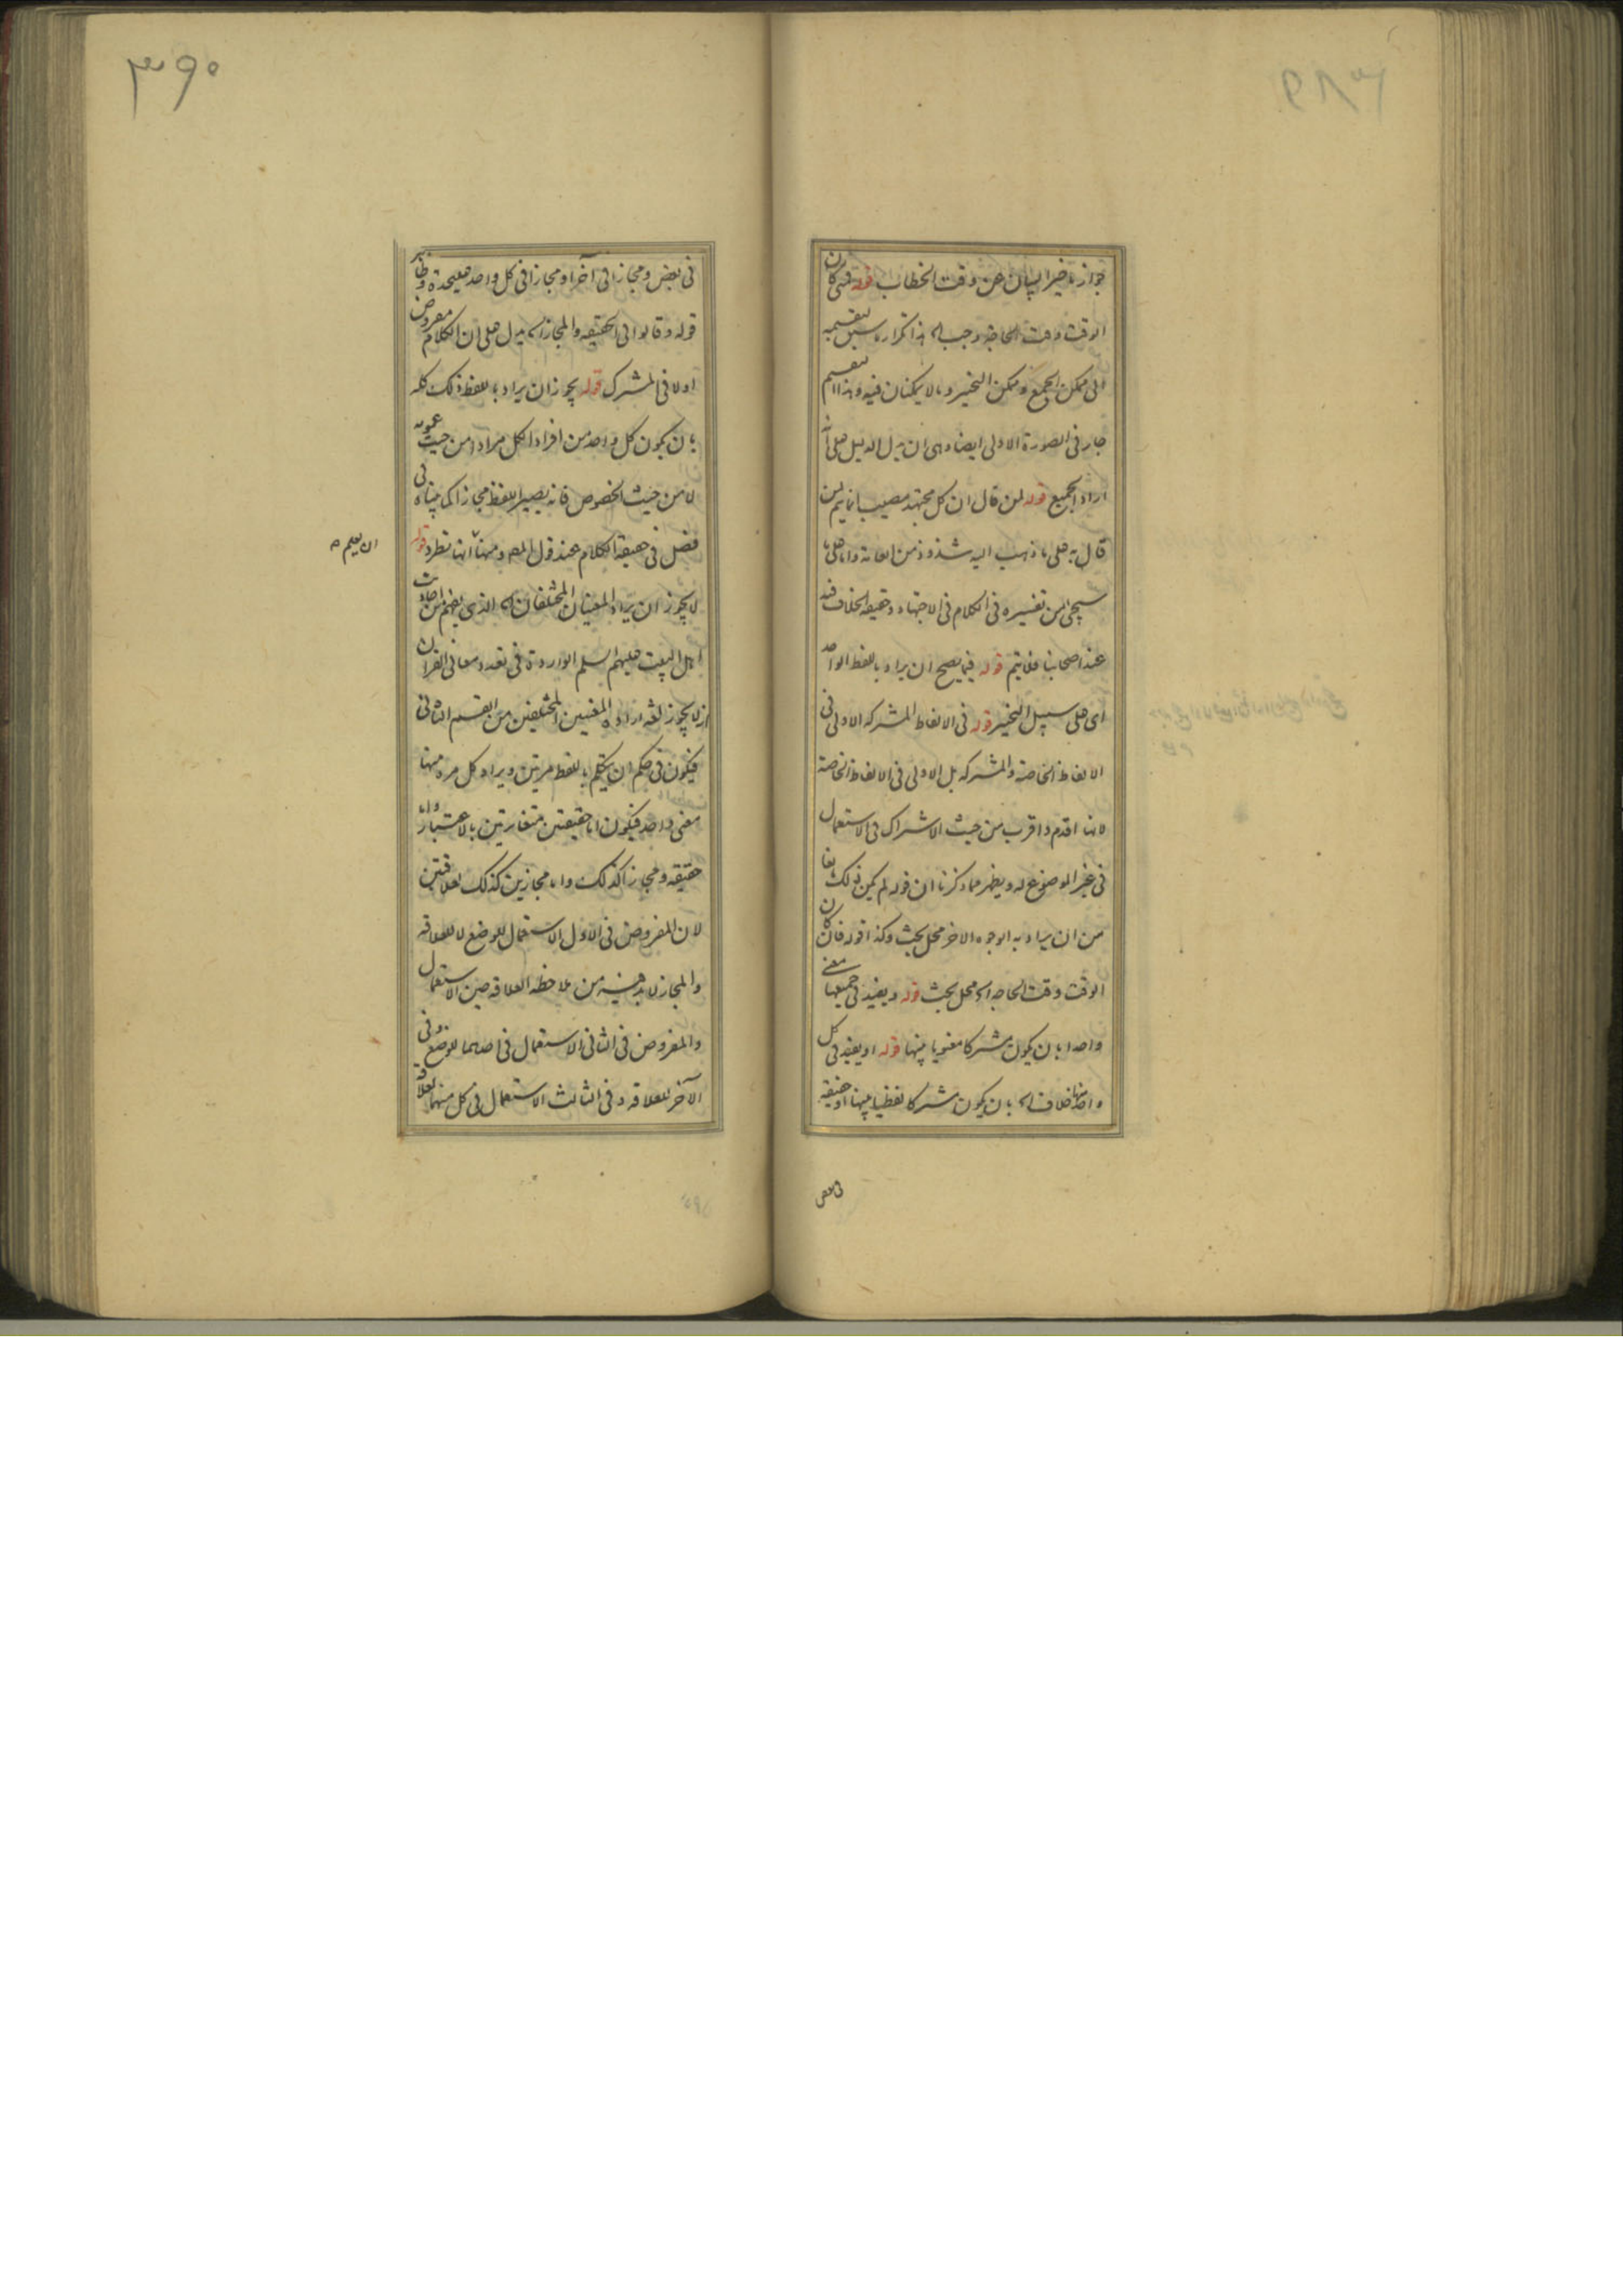 جواز تاخير البيان عن وقت الخطاب قوله فمتى كان
الوقت وقت الحاجة وجب اه هذا تكرار ما سبق لتقسيمه
الى ممكن الجمع وممكن التخيير وما لا يمكنان فيه وهذا التقسيم
جار في الصورة الاولى ايضا وهى ان يدل الدليل على انه
اراد الجميع قوله لمن قال ان كل مجتهد مصيب انما يتم لمن
قال به على ما ذهب اليه شذوذ من العامة واما على ما
سيجئ من تفسيره في الكلام في الاجتهاد وتحقيقه الخلاف فيه
عند اصحابنا فلا يتم قوله فيما يصح ان يراد باللفظ الواحد
اى على سبيل التخيير قوله في الالفاظ المشتركة الاولى في
الالفاظ الخاصة والمشتركة بل الاولى في الالفاظ الخاصة
لانها اقدم واقرب من حيث الاشتراك في الاستعمال
في غير الموضوع له ويظهر مما ذكرنا ان قوله لم يكن ذلك مانعا
من ان يراد به الوجوه الاخر محل بحث وكذا قوله فان كان
الوقت وقت الحاجة اه محل بحث قوله ويفيد في جميعها معنى
واحدا بان يكون مشتركا معنويا بينها قوله او يفيد في كل
واحد منها خلاف اه بان يكون مشتركا لفظيا بينها او حقيقة
في بعض
٣٩٠
في بعض ومجازا في آخر او مجازا في كل واحد عليحدة ونظاير
قوله وقالوا في الحقيقة والمجاز اه يدل على ان الكلام مفروض
اولا في المشترك قوله يجوز ان يراد باللفظ ذلك كله
بان يكون كل واحد من افراد الكل مرادا من حيث عمومه
لا من حيث الخصوص فانه يصير اللفظ مجازا كما بيناه في
فصل في حقيقة الكلام عند قول المص ومنها انها تطرد قوله
لا يجوز ان يراد المعنيان المختلفان اه الذي يفهم من احاديث
اهل البيت عليهم السلم الواردة في تعدد معاني القران
انه لا يجوز لغة ارادة المعنيين المختلفين من القسم الثاني
فيكون في حكم ان يتكلم باللفظ مرتين ويراد كل مرة منها
معنى واحد فيكون اما حقيقتين متغايرتين بالاعتبار واما
حقيقة ومجازا كذلك واما مجازين كذلك لعلاقتين
لان المفروض في الاول الاستعمال للوضع لا للعلاقة
والمجاز لابد فيه من ملاحظة العلاقة حين الاستعمال
والمفروض في الثاني الاستعمال في احدهما للوضع وفي
الآخر للعلاقة وفي الثالث الاستعمال في كل منهما لعلاقة